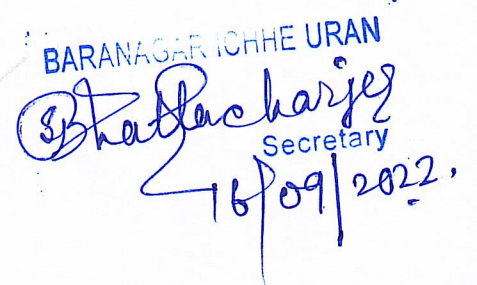 BARANAGAR ICHHE URAN
SBhattacharjee
Secretary
16/09/2022.